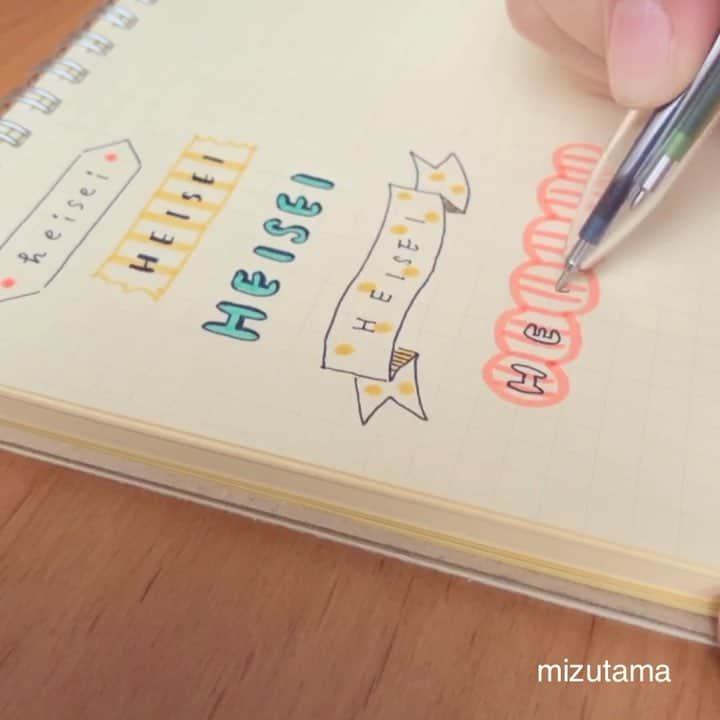 heisei
HEISEI
HEISEI
HEISEI
HE
mizutama